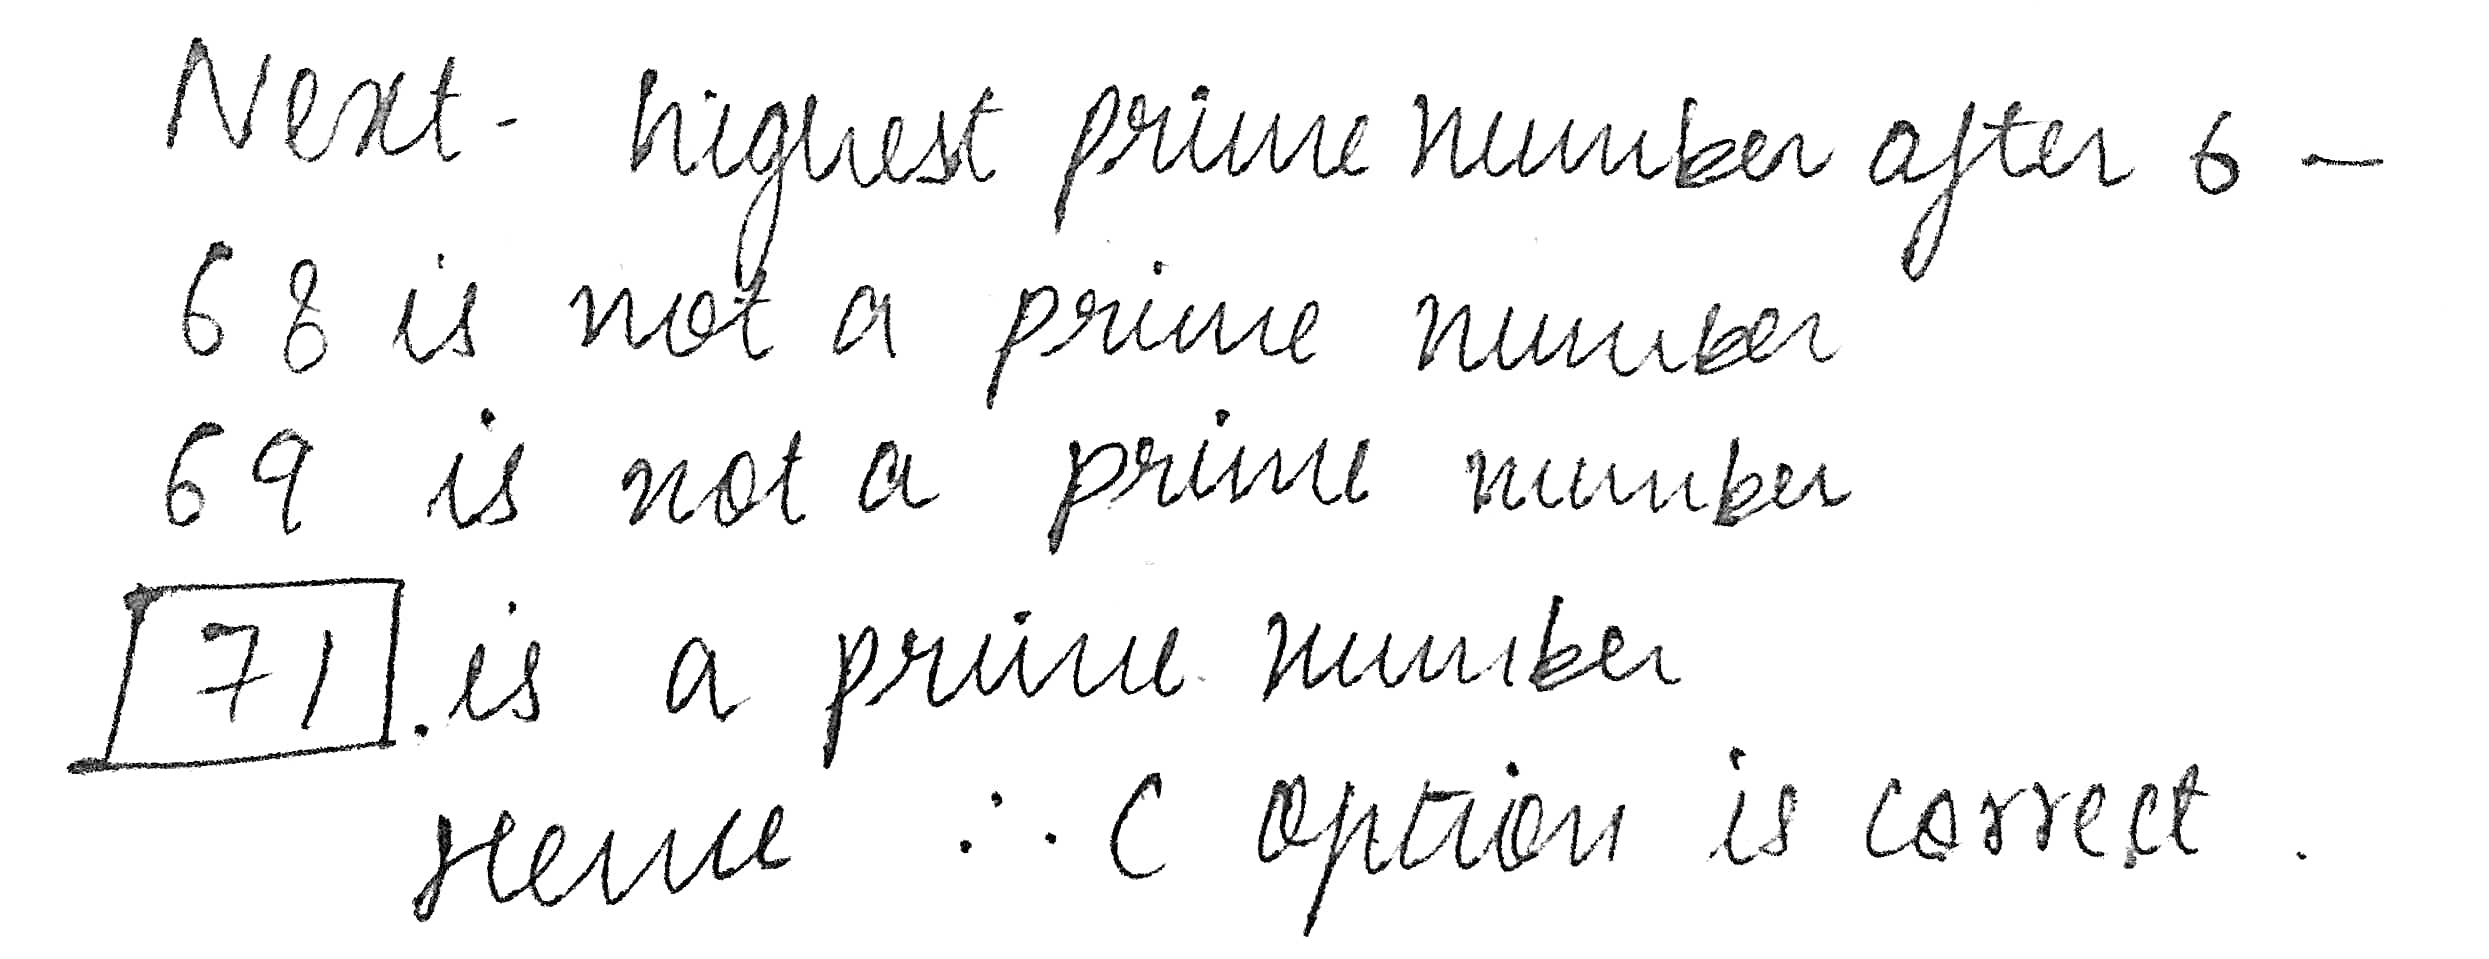 Next- highest prime number after 6 -
68 is not a prime number
69 is not a prime number
71 . is a prime number
Hence ∴ C option is correct .